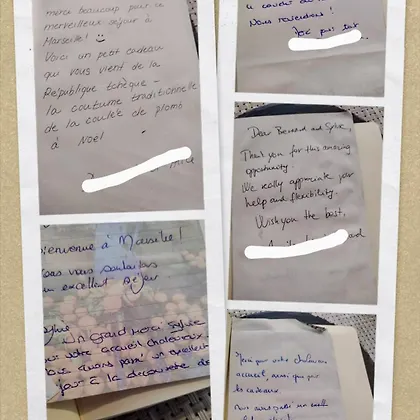 merci beaucoup pour ce
merveilleux séjour à
Marseille!
Voici un petit cadeau
qui vous vient de la
République tchèque –
la coutume traditionnelle
de la coulée de plomb
à Noël
Bienvenue à Marseille!
vous souhaitons
un excellent séjour
Un grand merci Sylvie
pour votre accueil chaleureux
Nous avons passé un excellent
jour à la découverte de
Nous reviendrons!
Dear Bernard and Sylvie,
Thank you for this amazing
opportunity.
We really appreciate your
help and flexibility.
Wish you the best,
Merci pour votre chaleureux
accueil, ainsi que pour
les cadeaux.